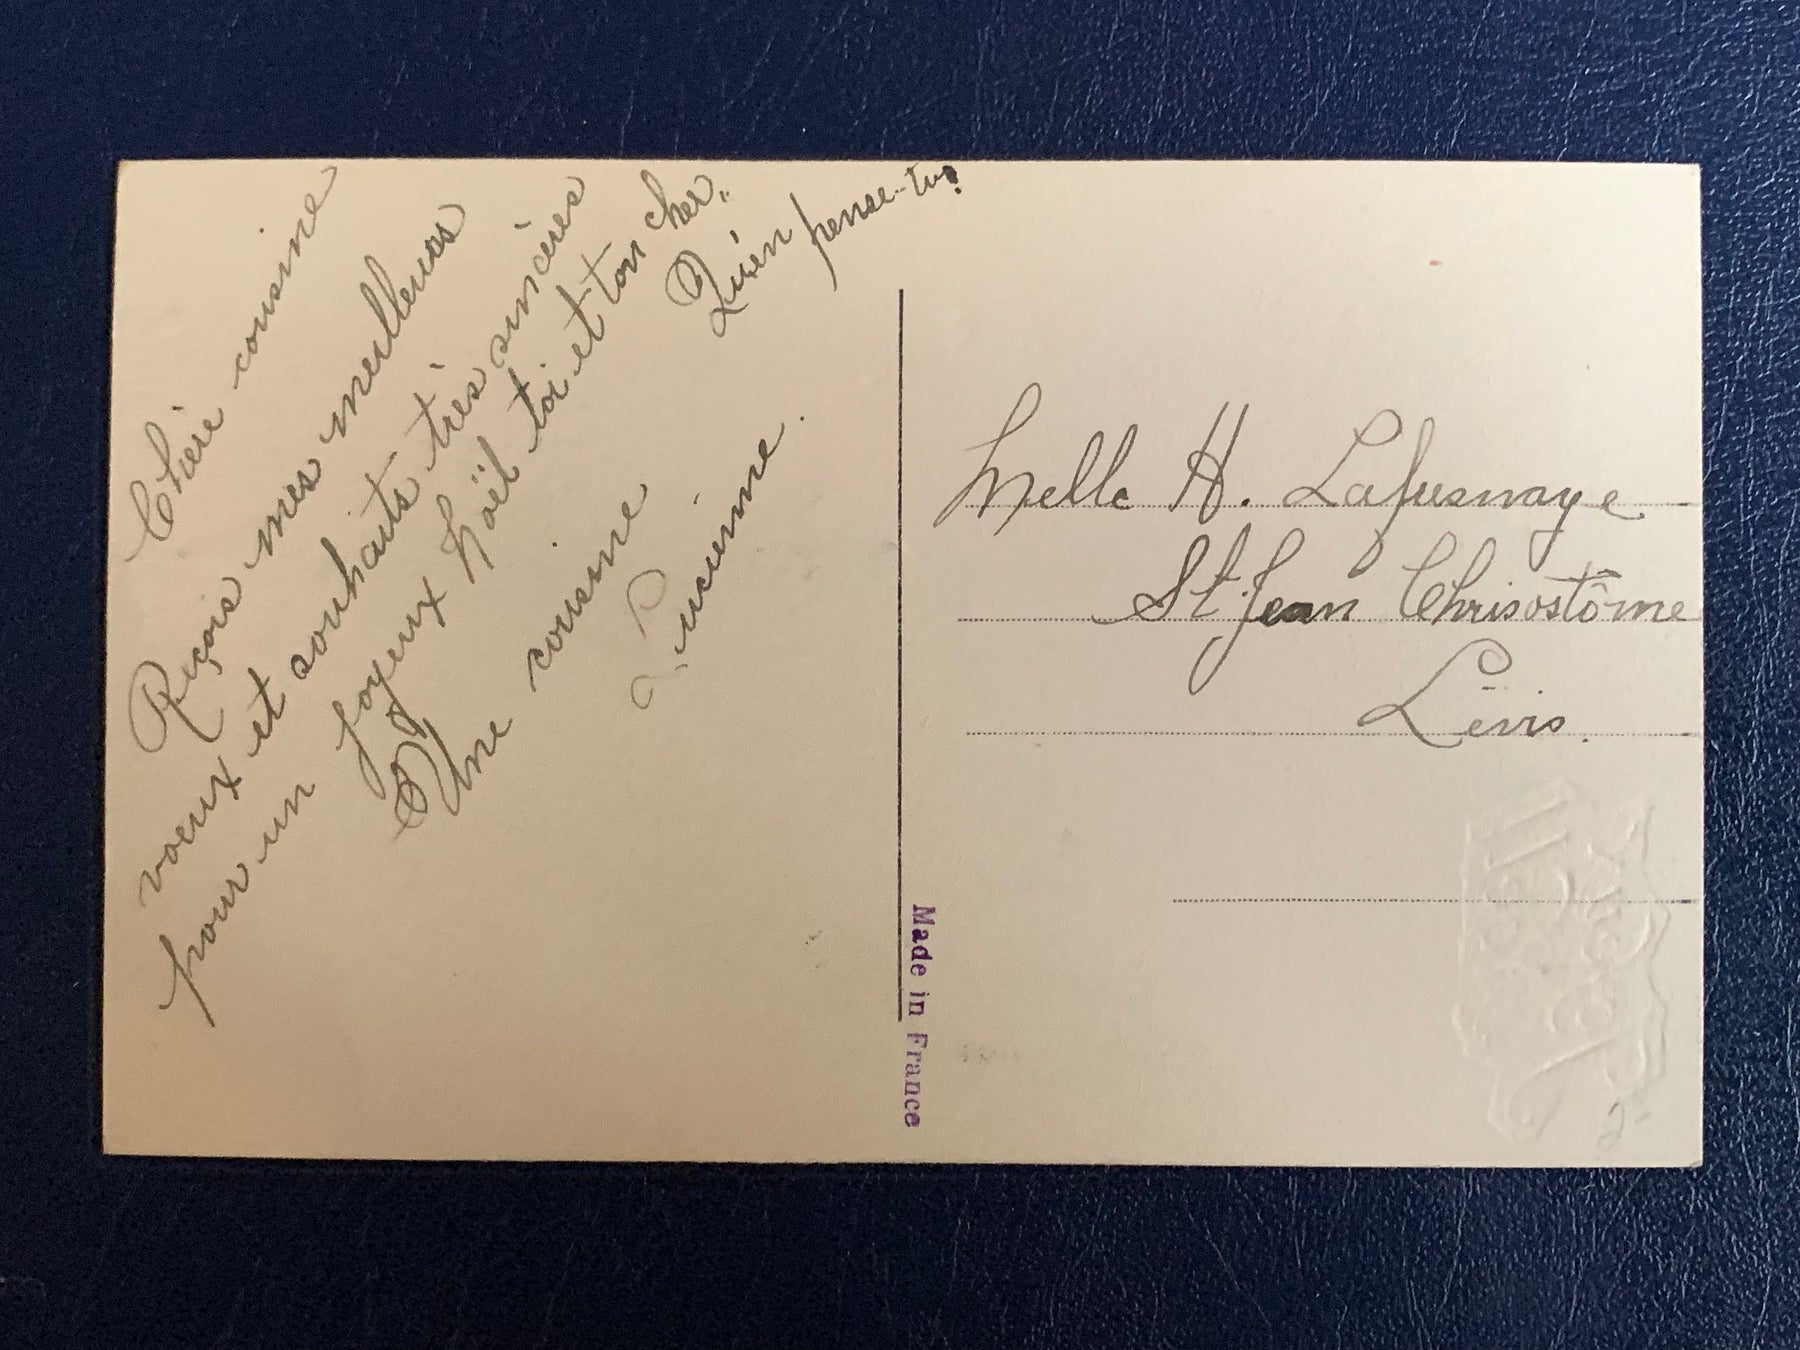 Chère cousine
Reçois mes meilleurs
voeux et souhaits très sincères
pour un joyeux Noël toi et ton cher.
Qu'en pense-tu?
Une cousine
Lucienne.
Melle H. Lafresnaye
St. Jean Chrisostôme
Lévis.
Made in France